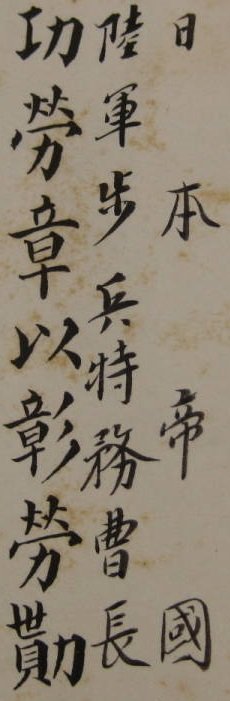 日本帝國
陸軍步兵特務曹長
功勞章以彰勞勩